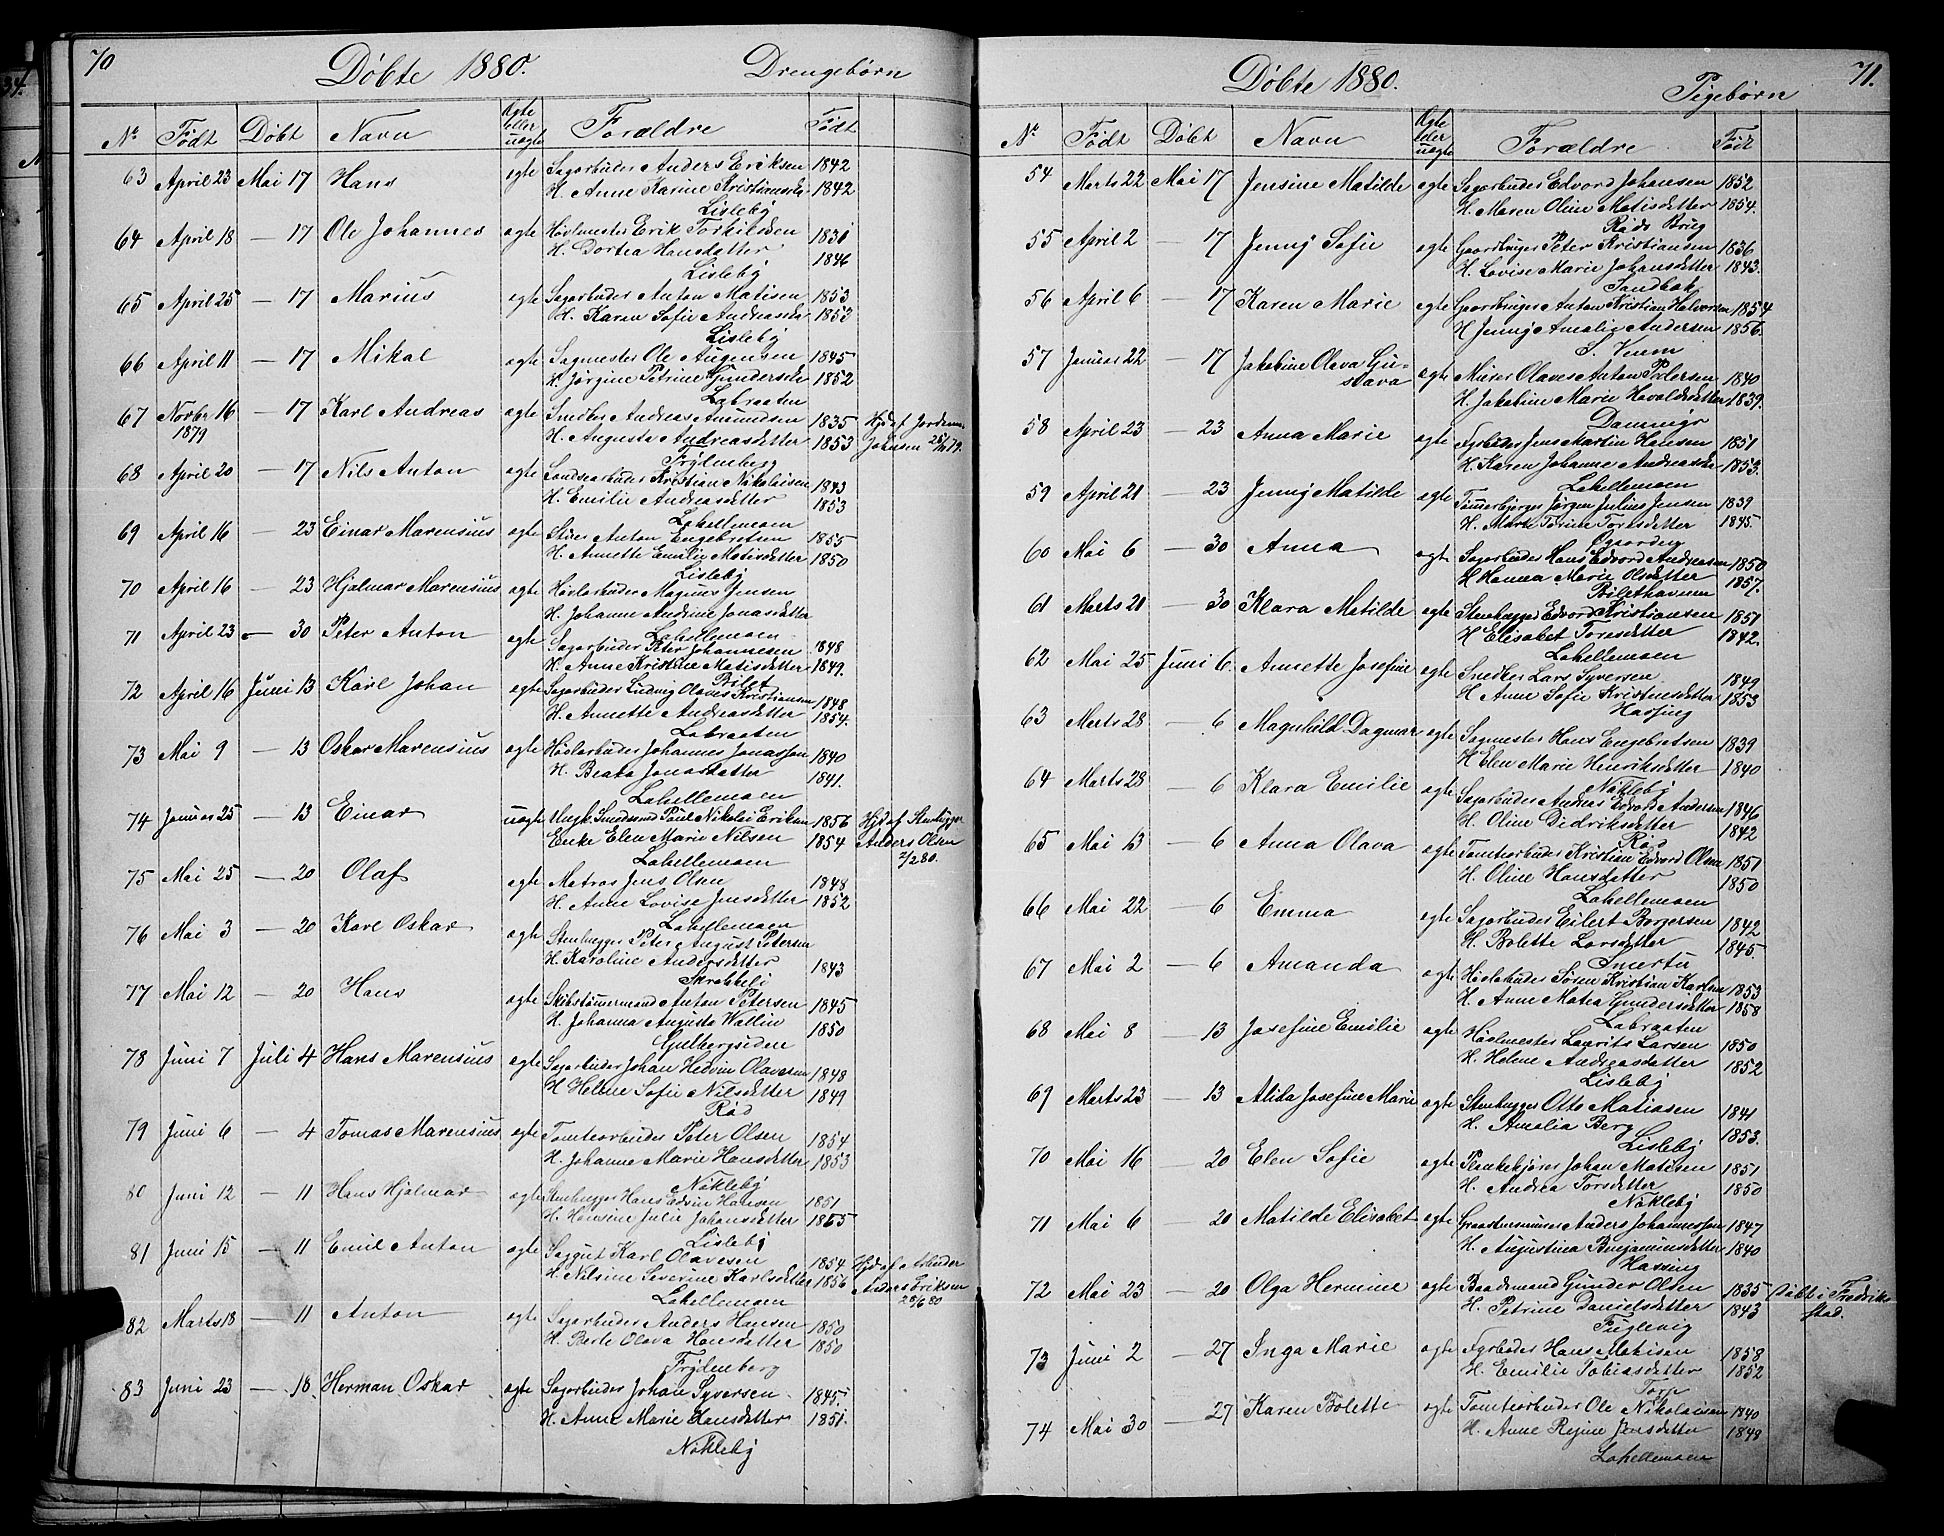 70
Döbte 1880.
Drengebörn
No Födt Döbt Navn Ægte eller uægte Forældre Födt
63 April 23 Mai 17 Hans ægte Sagarbuder Anders Eriksen 1842
H. Anne Karine 1842
Lisleby
64 April 18 — 17 Ole Johannes ægte Hövlmester Erik Torkildsen 1831
H. Dortea Hansdatter 1846
Lisleby
65 April 25 — 17 Marius ægte Sagarbuder Anton Matisen 1853
H. Karen Sofie 1853
Lisleby
66 April 11 — 17 Mikal ægte Sagmester Ole Augensen 1845
H. Jörgine Petrine 1852
Labraaten
67 Novbr 16 — 17 Karl Andreas ægte Andreas Amundsen 1835 Hjd af Jordem.
1879 H. Augusta Andreasdetter 1853 Johnsen
68 April 20 — 17 Nils Anton ægte Kristian Nikolaisen 1843
H. Emilie Andreasdetter 1853
Lahellemoen
69 April 16 — 23 Einar Marensius ægte Anton Engebretsen 1855
H. Annette Emilie Matisdetter 1850
Lisleby
70 April 16 — 23 Hjalmar Marensius ægte Hövlarbuder Magnus Jensen
H. Johanne Andrine Jonasdetter
Lahellemoen
71 April 23 — 30 Peter Anton ægte Sagarbuder Peter Johannesen 1848
H. Anne Kristine Matisdetter 1849.
Bilet
72 April 16 Juni 13 Karl Johan ægte Sagarbuder Ludvig Olaves Kristiansen 1848
H. Annette Andreasdetter 1854.
Labraaten
73 Mai 9 — 13 Oskar Marensius ægte Hövlarbuder Johannes Jonassön 1840
H. Beata Jonasdatter 1841.
Lahellemoen
74 Januar 25 — 13 Einar uægte Ungk. Paul Nikolai Eriksen 1856 Hjd af Stenhugger
Enke Elen Marie Nilsen 1854 Anders Olsen
Lahellemoen 2/2 80.
75 Mai 25 — 20 Olaf ægte Matros Jens Olsen 1848
H. Anne Lovise Jensdetter 1852
Lahellemoen
76 Mai 3 — 20 Karl Oskar ægte Stenhugger Peter August Petersen
H. Karoline Andersdetter 1843
77 Mai 12 — 20 Hans ægte Skibstömermand Anton Petersen 1845
H. Johanna Augusta Wallin 1850
Gulbergsiden
78 Juni 7 Juli 4 Hans Marensius ægte Sagarbuder Johan Hedvin Olavesen 1848
H. Helene Sofie Nilsdetter 1849
Röd
79 Juni 6 — 4 Tomas Marensius ægte Tomtearbuder Peter Olsen 1854
H. Johanne Marie Hansdetter 1853
Nökleby
80 Juni 12 — 11 Hans Hjalmar ægte Stenhugger Hans Edvin Hansen 1851
H. Hansine Julie Johansdetter 1855
Lisleby
81 Juni 15 — 11 Emil Anton ægte Karl Olavesen 1854 Hjd af Arbuder
H. Nilsine Severine Karlsdetter 1856 Anders Eriksen
Lahellemoen 28/6 80
82 Marts 18 — 11 Anton ægte Sagarbuder Anders Hansen 1850
H. Berte Olava Hansdetter 1850
83 Juni 23 — 18. Herman Oskar ægte Sagarbuder Johan Syversen 1845.
H. Anne Marie Hansdetter 1851.
Nökleby
71.
Döbte 1880.
Pigebörn
No Födt Döbt Navn Ægte eller uægte Forældre Födt
54 Marts 22 Mai 17 Jensine Matilde ægte Sagarbuder Edvard Johansen 1852
H. Maren Oline Matisdetter 1854.
Röds Brug
55 April 2 — 17 Jenny Sofie ægte Gaardbruger Peter Kristiansen 1836
H. Lovise Marie Johansdetter 1843.
Sandbæk
56 April 6 — 17 Karen Marie ægte Gaardbruger Anton Kristian Halvorsen 1854
H. Jenny Amalie Andersen 1856.
57 Januar 22 — 17 Jakobine Olava Gu-
stava ægte Murer Olaves Anton Pedersen 1840
H. Jakobine Marie 1839.
58 April 23 — 23 Anna Marie ægte Jens Martin Hansen 1851
H. Karen Johanne 1853.
Lahellemoen
59 April 21 — 23 Jenny Matilde ægte Jörgen Julius Jensen 1839
H. Marte Torine Torisdetter 1845.
60 Mai 6 — 30 Anna ægte Sagarbuder Hans Edvard Andreasen 1850
H Hanna Marie Olsdetter 1857.
61 Marts 21 — 30 Klara Matilde ægte Stenhugger Edvard Kristiansen 1851
H Elisabet Toresdetter 1842.
Lahellemoen
62 Mai 25 Juni 6. Annette Josefine ægte Snedker Lars Syversen 1849
H Anne Sofie Kristensdetter 1853
Hassing
63 Marts 28 — 6 Magnhild Dagmar ægte Sagmester Hans Engebretsen 1839
H Elen Marie Henriksdetter 1840
Nökleby
64 Marts 28 — 6 Klara Emilie ægte Sagarbuder Andreas Edvard Andersen 1846
H. Oline Didriksdetter 1842
Röd
65 Mai 13 — 6 Anna Olava ægte Tomtearbuder Kristian Edvard Olsen 1851
H. Oline Hansdatter 1850
Lahellemoen
66 Mai 22 — 6 Emma ægte Sagarbuder Eilert Borgersen 1842
H. Bolette Larsdetter 1845.
Smertu
67 Mai 2 — 6 Amanda ægte Hövlarbuder Sören Kristian Karlsen 1853
H. Anne Matea Gundersdetter 1858
Labraaten
68 Mai 8 — 13 Josefine Emilie ægte Hövlmester Laurits Larsen 1850
H. Helene Andreasdetter 1852
Lisleby
69 Marts 23 — 13 Alida Josefine Marie ægte Stenhugger Otto Matiasen 1841
H. Amalia Berg 1853.
Lisleby
70 Mai 16 — 20 Elen Sofie ægte Plankekjörer Johan Matisen 1851
H. Andrea Torsdetter 1850
Nökleby
71 Mai 6 — 20 Matilde Elisabet ægte Graastensmurer Anders Johannessön 1847
H. Augustina Benjaminsdetter 1840
Hassing
72 Mai 23 — 20 Olga Hermine ægte Baadsmand Gunder Olsen 1835 Döbt i Fredrik-
H. Petrine Danielsdetter 1843 stad.
Fuglevig
73 Juni 2 — 27 Inga Marie ægte Hans Matisen 1858
H. Emilie Tobiasdetter 1852
Torp
74 Mai 30 — 27 Karen Bolette ægte Tomtearbuder Ole Nikolaisen 1840
H. Anne Regine Jensdetter 1848
Lahellemoen